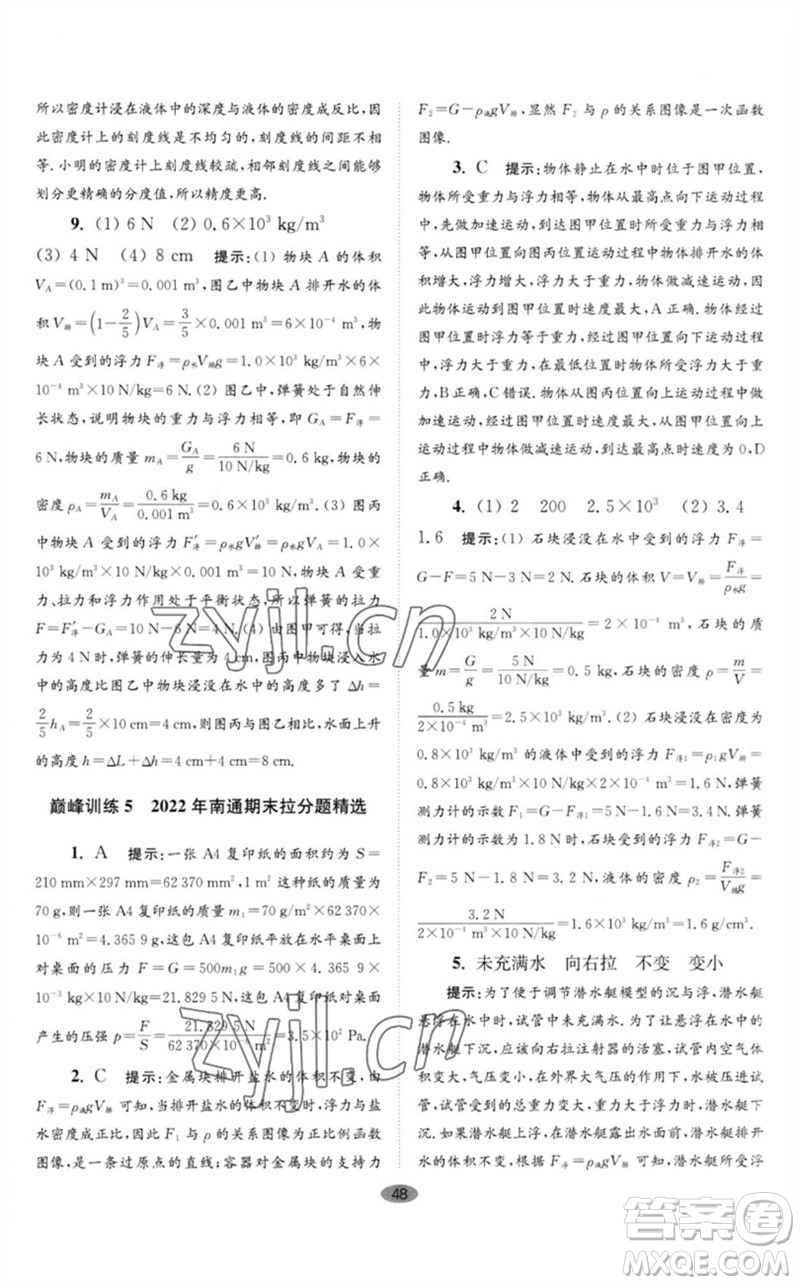 所以密度计浸在液体中的深度与液体的密度成反比，因
此密度计上的刻度线是不均匀的，刻度线的间距不相
等. 小明的密度计上刻度线较疏，相邻刻度线之间能够
划分更精确的分度值，所以精度更高.
9. (1) 6 N (2) 0.6×10³ kg/m³
(3) 4 N (4) 8 cm 提示：(1) 物块 A 的体积
V_A=(0.1 m)³=0.001 m³，图乙中物块 A 排开水的体
积 V排=(1-2/5)V_A=3/5×0.001 m³=6×10⁻⁴ m³，物
块 A 受到的浮力 F浮=ρ水gV排=1.0×10³ kg/m³×6×
10⁻⁴ m³×10 N/kg=6 N. (2) 图乙中，弹簧处于自然伸
长状态，说明物块的重力与浮力相等，即 G_A=F浮=
6 N，物块的质量 m_A=G_A/g=6 N/10 N/kg=0.6 kg，物块的
密度 ρ_A=m_A/V_A=0.6 kg/0.001 m³=0.6×10³ kg/m³. (3) 图丙
中物块 A 受到的浮力 F′浮=ρ水gV′排=1.0×10³ kg/m³×
0.001 m³×10 N/kg=10 N. 图丙中物块 A 受重
力、拉力和浮力作用处于平衡状态，弹簧的拉力
F=F′浮-G_A=10 N-6 N=4 N. (4) 由图甲可得，当拉
力为 4 N 时，弹簧的伸长量为 4 cm. 图丙中物块浸入水
中的高度比图乙中物块浸没在水中的高度多了 Δh=
2/5 h_A=2/5×10 cm=4 cm，则图丙与图乙相比，水面上升
的高度 h=ΔL+Δh=4 cm+4 cm=8 cm.
巅峰训练 5 2022 年南通期末拉分题精选
1. A 提示：一张 A4 复印纸的面积约为 S=
210 mm×297 mm=62 370 mm²，1 m² 这种纸的质量为
70 g，则一张 A4 复印纸的质量 m₁=70 g/m²×62 370×
10⁻⁶ m²=4.365 9 g，这包 A4 复印纸平放在水平桌面
上对桌面的压力 F=G=500m₁g=500×4.365 9×
10⁻³ kg×10 N/kg=21.829 5 N，这包 A4 复印纸对桌面
产生的压强 p=F/S=21.829 5 N/62 370×10⁻⁶ m²=3.5×10² Pa.
2. C 提示：金属块排开盐水的体积不变，由
F浮=ρ液gV排 可知，当排开盐水的体积不变时，浮力与盐
水密度成正比，因此 F₁ 与 ρ 的关系图像为正比例函数
图像——过原点的直线；容器对金属块的支持力
F₂=G-ρ液gV排，显然 F₂ 与 ρ 的关系图像是一次函数
图像.
3. C 提示：物体静止在水中时位于图甲位置，
物体所受重力与浮力相等，物体从最高点向下运动过程
中，先做加速运动，到达图甲位置时速度最大，物体经过
图甲位置向图丙位置运动过程中，物体排开水的体积
增大，浮力增大，浮力大于重力，物体做减速运动，因此
物体运动到图甲位置时速度最大，A 正确. 物体经过
图甲位置后，浮力大于重力，在最低点时浮力最大，因
此，浮力大于重力，B 正确，C 错误. 物体从图丙位置向
上运动经过图甲位置后，浮力小于重力，图甲位置以上
过程中物体做减速运动，运动到最高点时速度为 0，D
正确.
4. (1) 2 200 2.5×10³ (2) 3.4
1.6 提示：(1) 石块浸没在水中时受到的浮力 F浮=
G-F=5 N-3 N=2 N. 石块的体积 V=V排=F浮/ρ水g=
2 N/1.0×10³ kg/m³×10 N/kg=2×10⁻⁴ m³，石块的质
量 m=G/g=5 N/10 N/kg=0.5 kg，石块的密度 ρ=m/V=
0.5 kg/2×10⁻⁴ m³=2.5×10³ kg/m³. (2) 石块浸没在密度为
0.8×10³ kg/m³ 的液体中受到的浮力 F浮1=ρ₁gV排=
0.8×10³ kg/m³×2×10⁻⁴ m³×10 N/kg=1.6 N，弹簧
测力计的示数 F₁=G-F浮1=5 N-1.6 N=3.4 N. 弹簧
测力计的示数为 1.8 N 时，石块受到的浮力 F浮2=G-
F₂=5 N-1.8 N=3.2 N，液体的密度 ρ₂=F浮2/gV排=
3.2 N/2×10⁻⁴ m³×10 N/kg=1.6×10³ kg/m³=1.6 g/cm³.
5. 未充满水 向右拉 不变 变小
提示：为了便于调节潜水艇模型的沉与浮，潜水艇
悬浮在水中时，试管中未充满水. 为了使悬浮的潜水
艇下沉，应该向右拉注射器的活塞，试管内气体体积
增大，气压变小，在外界大气压的作用下，水进入试管，
使试管的总重力变大，重力大于浮力，潜水艇模型下
沉. 如果潜水艇未露出水面前，潜水艇排开水
的体积不变，根据 F浮=ρ液gV排 可知，潜水艇所受浮
48
zyjl.cn
zyjl.cn
答案圈
MXQE.COM